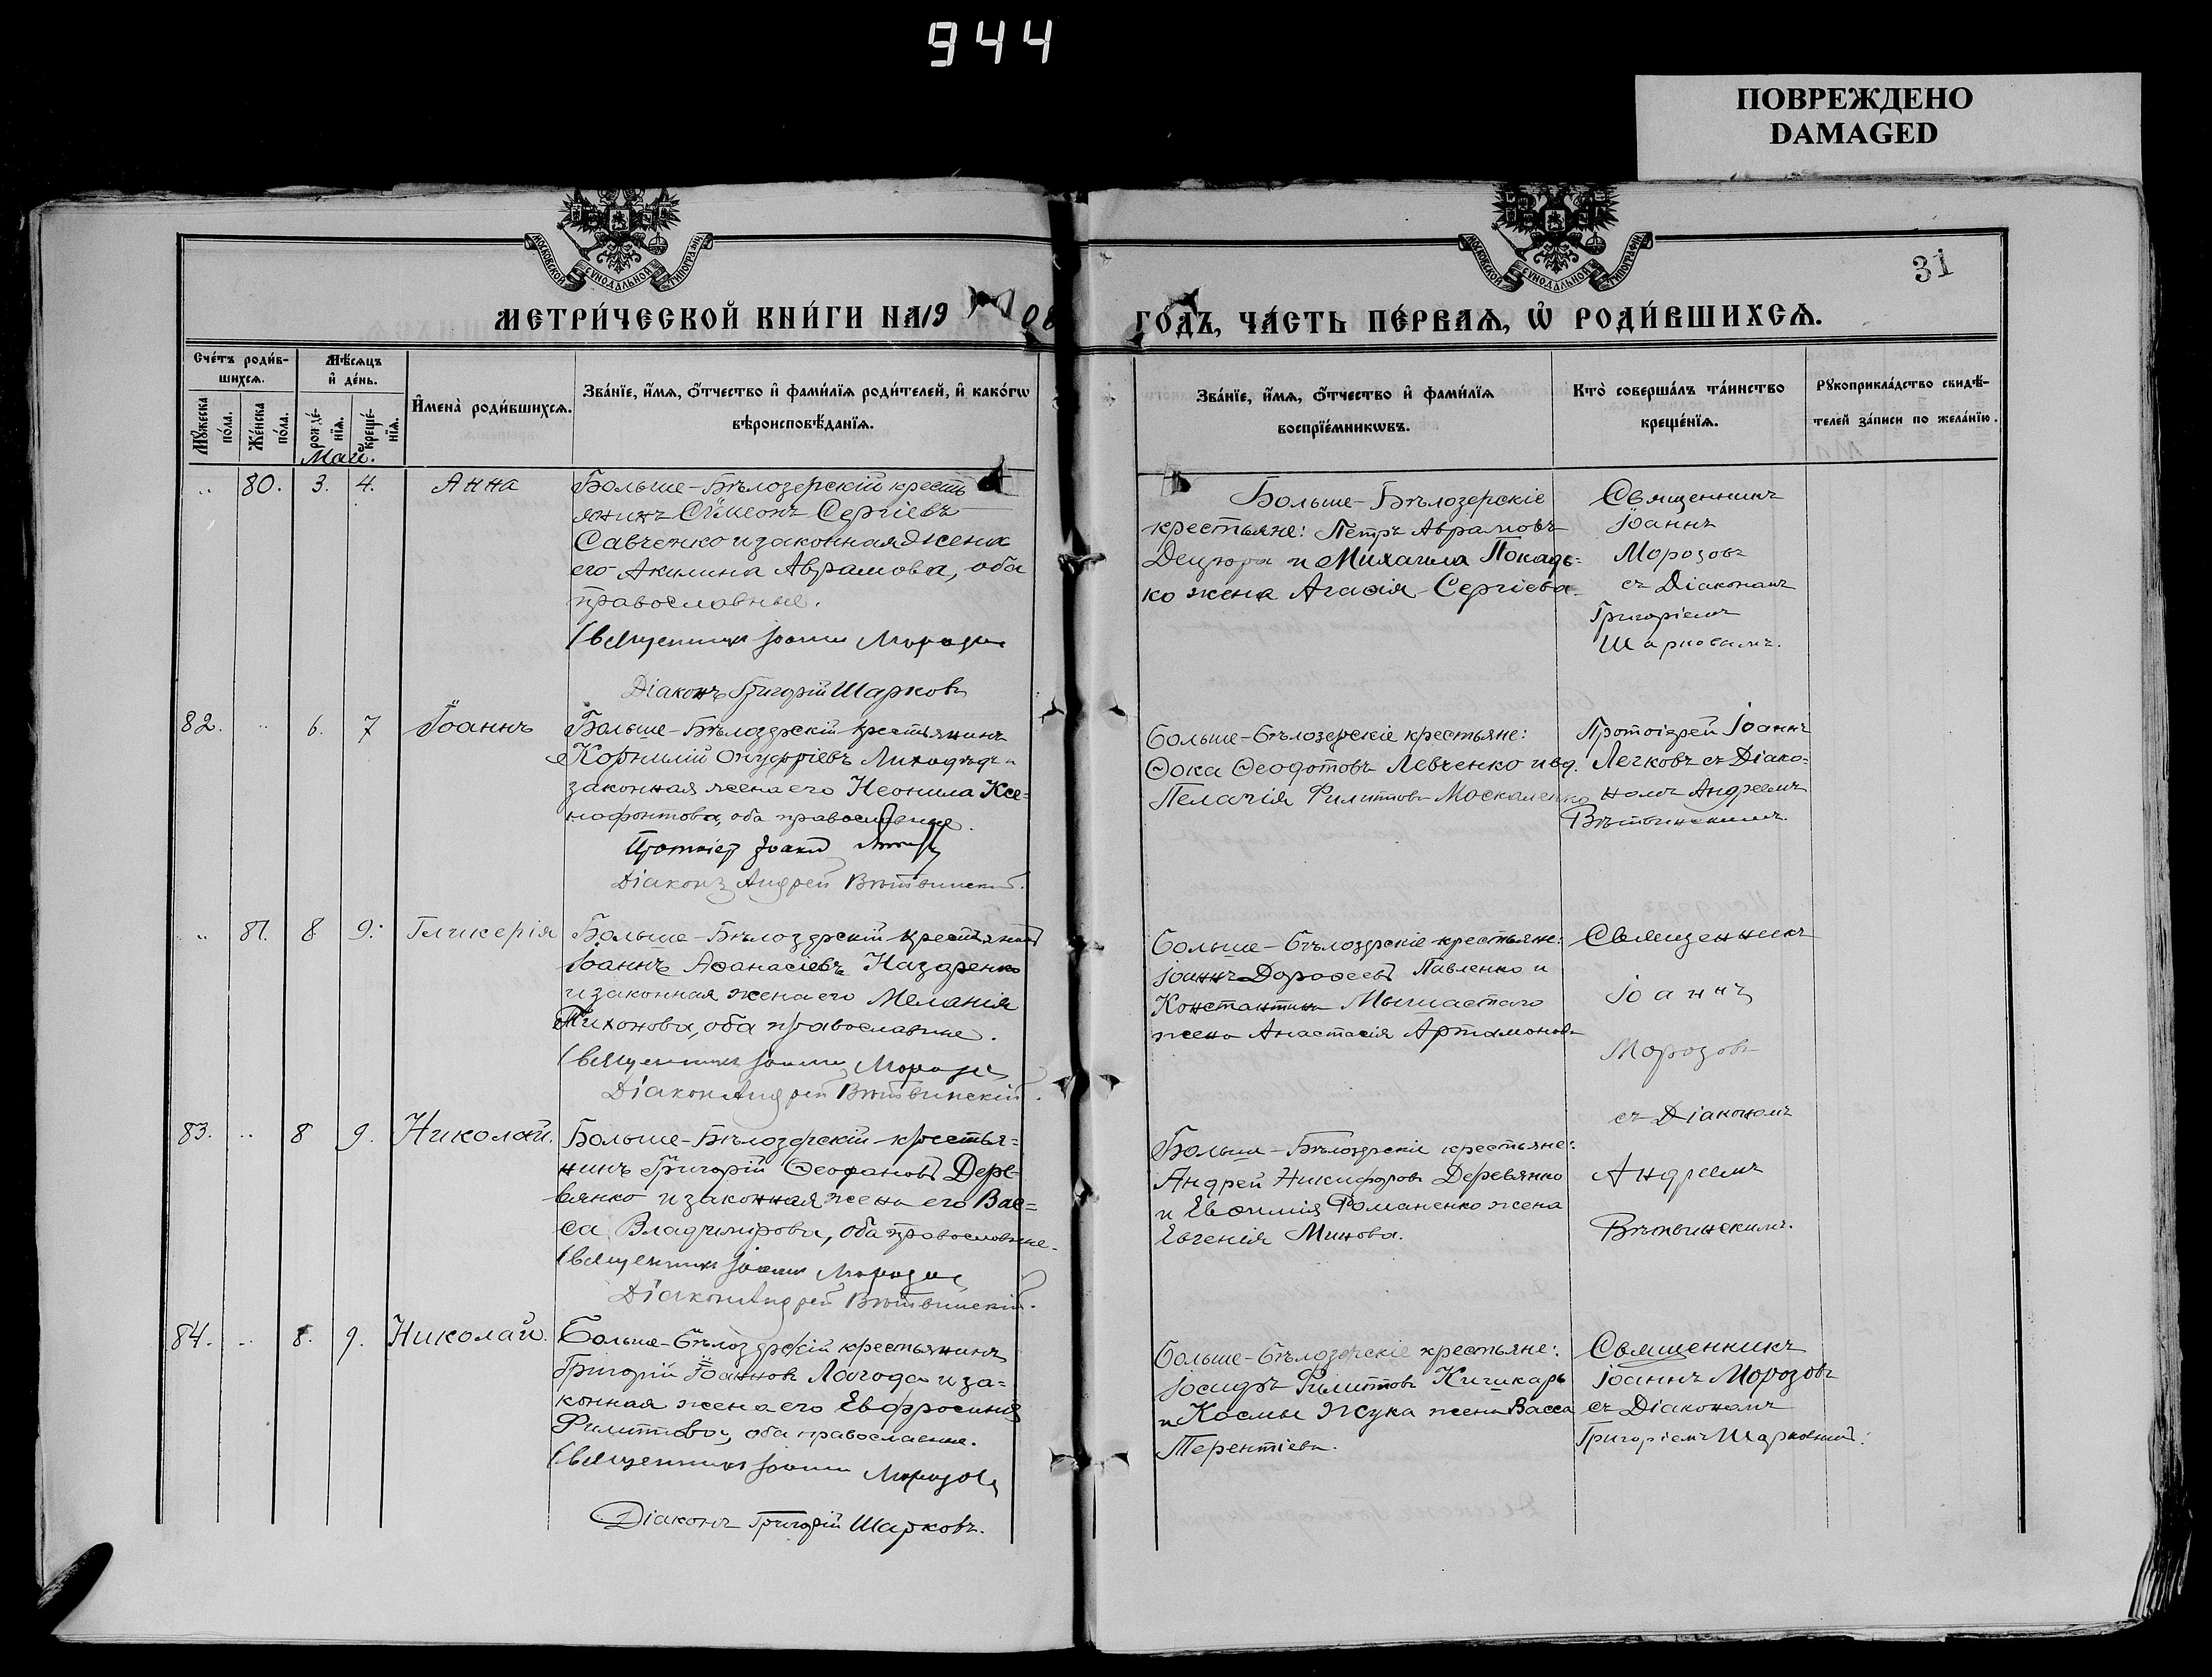 944
ПОВРЕЖДЕНО
DAMAGED
МОСКОВСКОЙ СѴНОДАЛЬНОЙ ТИПОГРАФІИ
МОСКОВСКОЙ СѴНОДАЛЬНОЙ ТИПОГРАФІИ
31
МЕТРИ́ЧЕСКОЙ КНИ́ГИ НА 19 08
ГО́ДЪ, ЧА́СТЬ ПЕ́РВАѦ, Ѡ҆ РОДИ́ВШИХСѦ.
Сче́тъ роди́в-
шихсѧ.
Мѣ́сѧцъ
и҆ де́нь.
Мꙋ́жеска по́ла.
Же́нска по́ла.
рожде́-
нїѧ.
креще́-
нїѧ.
И҆мена̀ роди́вшихсѧ.
Зва́нїе, и҆́мѧ, ѻ҆́тчество и҆ фами́лїѧ роди́телей, и҆ како́гѡ
вѣроисповѣ́данїѧ.
Зва́нїе, и҆́мѧ, ѻ҆́тчество и҆ фами́лїѧ
воспрїе́мникѡвъ.
Кто̀ соверша́лъ та́инство
креще́нїѧ.
Рꙋкоприкла́дство свидѣ́-
телей за́писи по жела́нїю.
Май.
.. 80. 3. 4. Анна
Больше-Бѣлозерскій кресть
янинъ Сѵмеонъ Сергіевъ
Савченко и законная жена
его Акилина Аврамова, оба
православные.
Священникъ Іоаннъ Морозовъ
Діаконъ Григорій Шарковъ
Больше-Бѣлозерскіе
крестьяне: Петръ Аврамовъ
Децюра и Михаила Покадь-
ко жена Агаѳія Сергіева.
Священникъ
Іоаннъ
Морозовъ
съ Діакономъ
Григоріемъ
Шарковымъ.
82. .. 6. 7 Іоаннъ
Больше-Бѣлозерскій крестьянинъ
Корнилій Онуфріевъ и
законная жена его Неонила Ксе-
нофонтова, оба православные.
Протоіер Іоаннъ
Діаконъ Андрей Вѣтвинскій.
Больше-Бѣлозерскіе крестьяне:
Ѳока Ѳеодотовъ Левченко и вд.
Пелагія Филиппова Москаленко
Протоіерей Іоаннъ
Легковъ съ Діако-
номъ Андреемъ
Вѣтвинскимъ.
.. 81. 8 9. Гликерія
Больше-Бѣлозерскій крестьянинъ
Іоаннъ Аѳанасіевъ Назаренко
и законная жена его Меланія
Тихонова, оба православные.
Священникъ Іоаннъ Морозовъ
Діаконъ Андрей Вѣтвинскій.
Больше-Бѣлозерскіе крестьяне:
Іоаннъ Дороѳеевъ Павленко и
Константина Мышастаго
жена Анастасія Артамонова
Священникъ
Іоаннъ
Морозовъ
съ Діакономъ
Андреемъ
Вѣтвинскимъ.
83. .. 8 9. Николай.
Больше-Бѣлозерскій крестья-
нинъ Григорій Ѳеофановъ Дере-
вянко и законная жена его Вас-
са Владимірова, оба православные.
Священникъ Іоаннъ Морозовъ
Діаконъ Андрей Вѣтвинскій.
Больше-Бѣлозерскіе крестьяне:
Андрей Никифоровъ Деревянко
и Евѳимія Романенко жена
Евгенія Минова.
84. .. 8. 9. Николай.
Больше-Бѣлозерскій крестьянинъ
Григорій Іоанновъ Лагода и за-
конная жена его Евфросинія
Филиппова, оба православные.
Священникъ Іоаннъ Морозовъ
Діаконъ Григорій Шарковъ.
Больше-Бѣлозерскіе крестьяне:
Іосифъ Филипповъ Кишкарь
и Космы Жука жена Васса
Терентіева.
Священникъ
Іоаннъ Морозовъ
съ Діакономъ
Григоріемъ Шарковымъ.